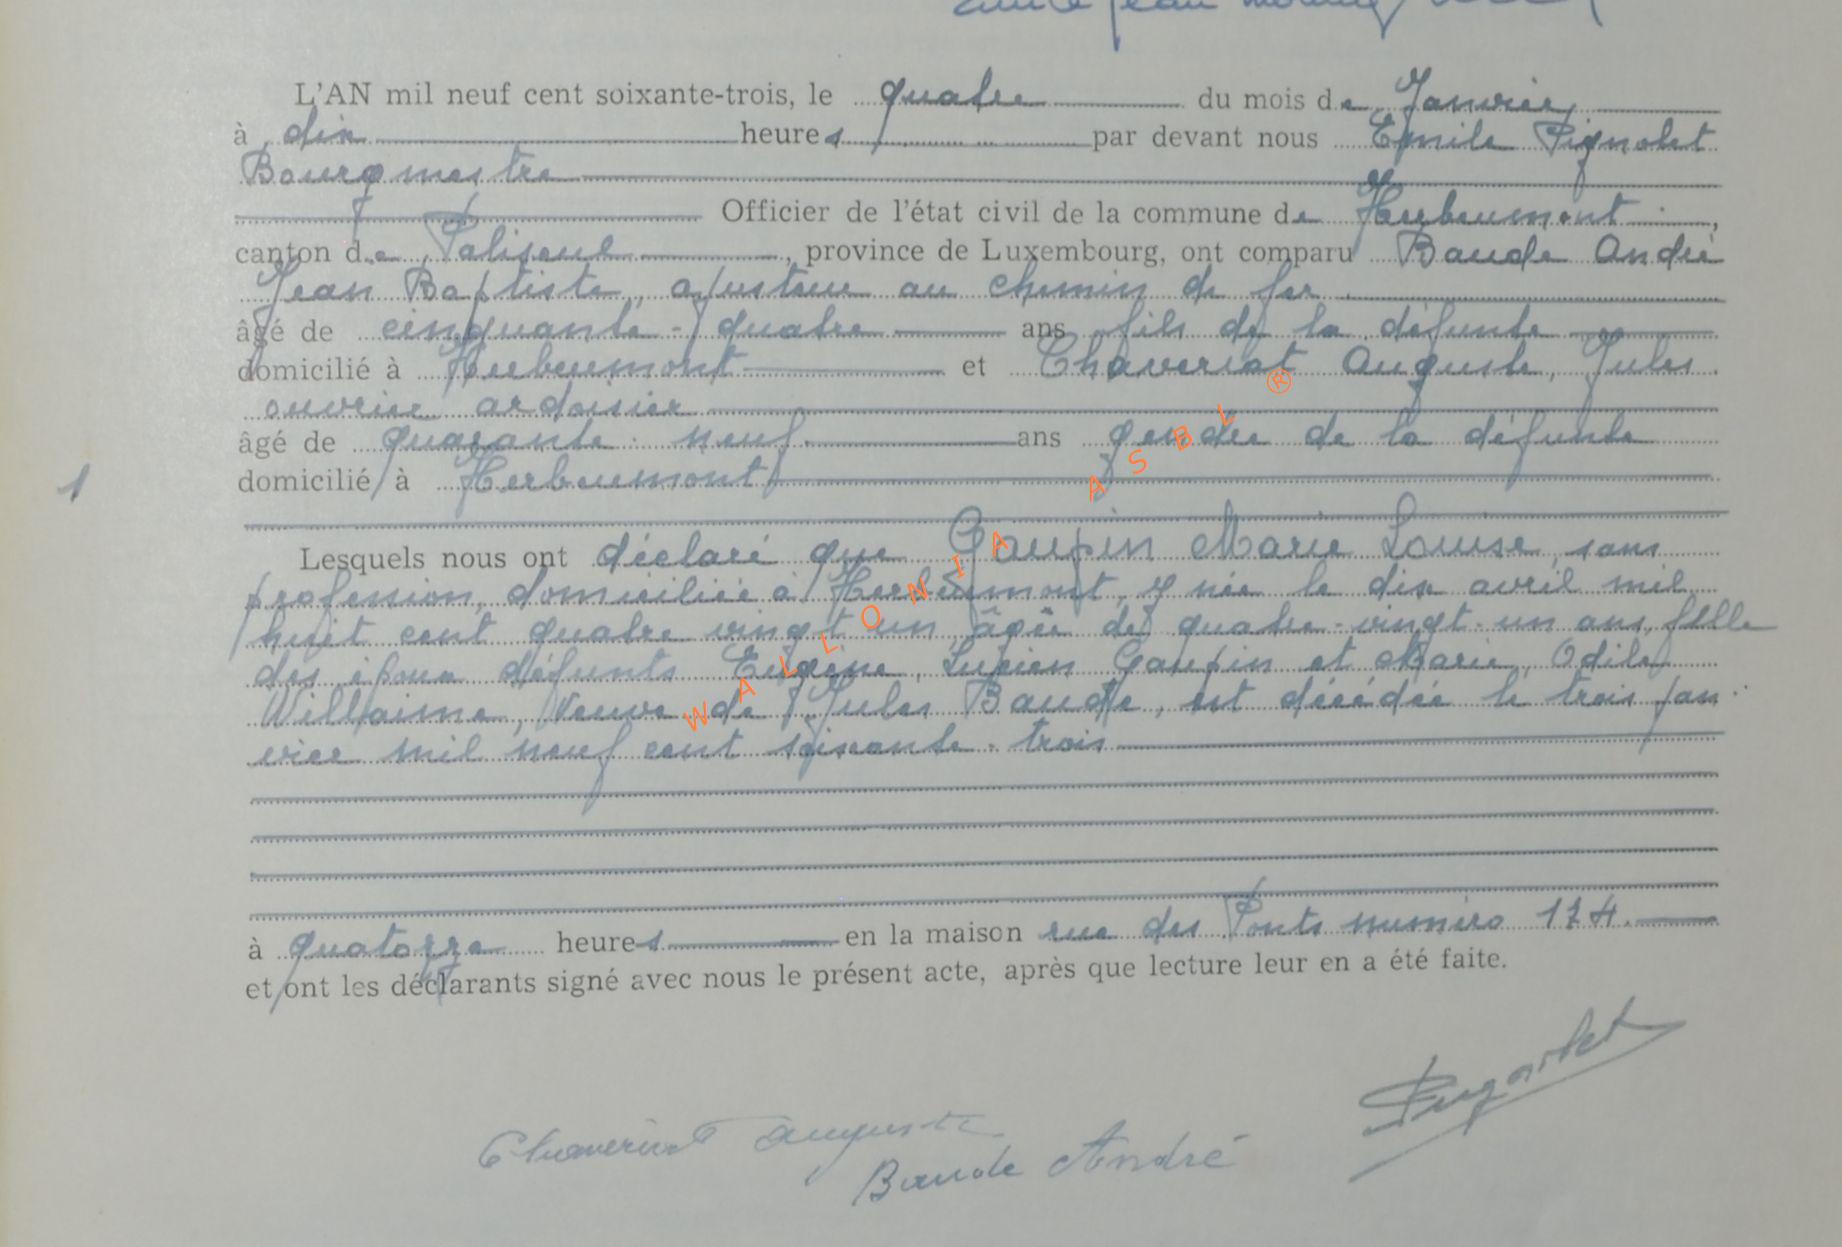 L'AN mil neuf cent soixante-trois, le quatre du mois de Janvier
à dix heures par devant nous Emile Pignolet
Bourgmestre
Officier de l'état civil de la commune de Herbeumont,
canton de Paliseul, province de Luxembourg, ont comparu Baude André
Jean Baptiste, ajusteur au chemin de fer
âgé de cinquante-quatre ans fils de la défunte
domicilié à Herbeumont et Chaveriat Auguste, Jules
ouvrier ardoisier
âgé de quarante neuf ans gendre de la défunte
domicilié à Herbeumont
1
Lesquels nous ont déclaré que Goupin Marie Louise, sans
profession, domiciliée à Herbeumont, y née le dix avril mil
huit cent quatre vingt un, âgée de quatre-vingt-un ans, fille
des époux défunts Eugène, Lucien Goupin et Marie, Odile
Willaime, Veuve de Jules Baude, est décédée le trois jan
vier mil neuf cent soixante-trois
à quatorze heures en la maison rue des Ponts numéro 174.
et ont les déclarants signé avec nous le présent acte, après que lecture leur en a été faite.
Pignolet
Chaveriat Auguste
Baude André
WALLONIA ASBL ®